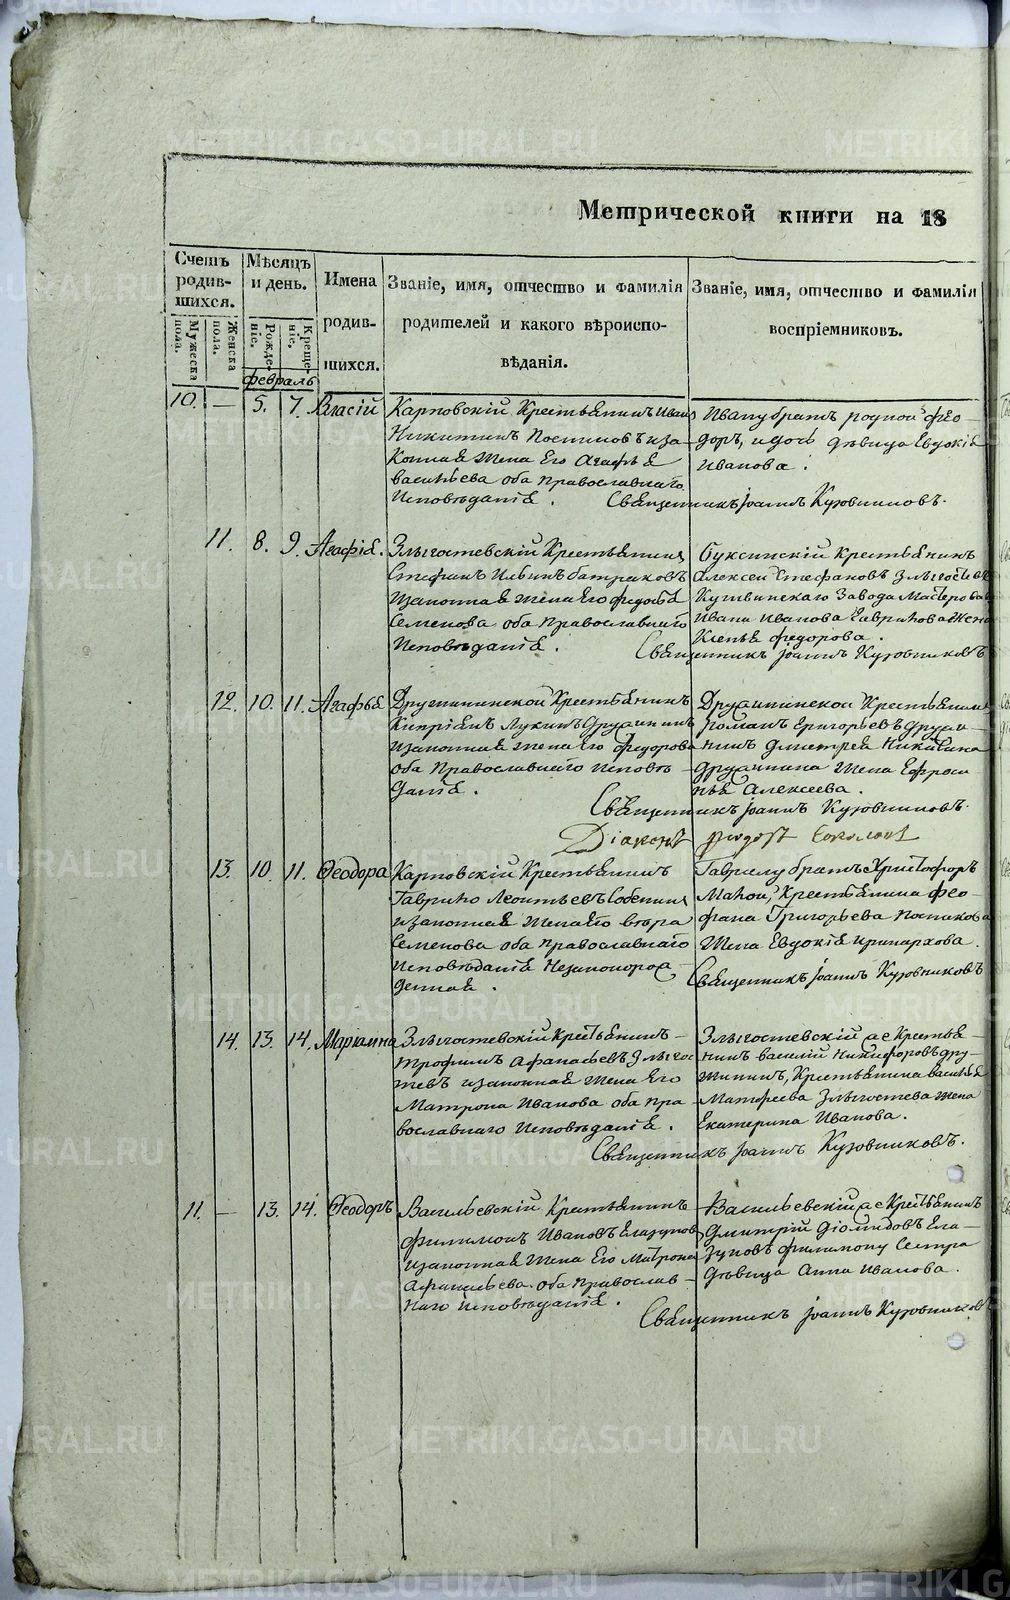 Метрической книги на 18
Счетъ родившихся.
Мужеска пола.
Женска пола.
Мѣсяцъ и день.
Рожденіе.
Крещеніе.
февраль
Имена родившихся.
Званіе, имя, отчество и фамилія родителей и какого вѣроисповѣданія.
Званіе, имя, отчество и фамилія воспріемниковъ.
10. — 5. 7. Власій
Карповскій Крестьянинъ Иванъ
Никитинъ Постниковъ иза
конная жена Его Агафья
васильева оба православнаго
Исповѣданія.
Ивану братъ родной Фео-
доръ, и дочь дѣвица Евдокія
Иванова.
Священникъ Іоаннъ Кузовниковъ.
11. 8. 9. Агафія.
Злыгостевскій Крестьянинъ
Стефанъ Ильинъ батраковъ
изаконная жена Его федосья
Семенова оба православнаго
Исповѣданія.
Крестьянинъ
Алексей Стефановъ
Кушвинскаго Завода
Ивана Иванова Гаврилова жена
федорова.
Священникъ Іоаннъ Кузовниковъ
12. 10. 11. Агафья
Дружининской Крестьянинъ
Кипріянъ Лукинъ Дружининъ
изаконная жена Его федорова
оба православнаго исповѣ-
данія.
Дружининской Крестьянинъ
романъ григорьевъ дружи-
нинъ дмитрея Никитина
дружинина жена Ефроси
нья Алексеева.
Священникъ Іоаннъ Кузовниковъ.
Діаконъ
13. 10. 11. Ѳеодора
Карповскій Крестьянинъ
Гаврило Леонтьевъ
изаконная жена Его
Семенова оба православнаго
исповѣданія Незаконорож-
денная.
Гаврилу братъ
Крестьянина Фео-
фана Григорьева
жена Евдокія
Священникъ Іоаннъ Кузовниковъ
14. 13. 14. Маріамна
Злыгостевскій Крестьянинъ
трофимъ Афанасьевъ Злыгос
тевъ изаконная жена Его
Матрона Иванова оба пра
вославнаго Исповѣданія.
Злыгостевскій же Крестья-
нинъ василій Никифоровъ дру-
жининъ, Крестьянина василья
Матфеева Злыгостева жена
Екатерина Иванова.
Священникъ Іоаннъ Кузовниковъ.
11. — 13. 14. Ѳеодоръ
Васильевскій Крестьянинъ
Филимонъ Ивановъ Елазуновъ
изаконная жена Его Матрона
Афанасьева оба православ-
наго исповѣданія.
Васильевскій же Крестьянинъ
Дмитрій Діомидовъ Ела-
зуновъ филимону Сестра
дѣвица Анна Иванова.
Священникъ Іоаннъ Кузовниковъ
METRIKI.GASO-URAL.RU